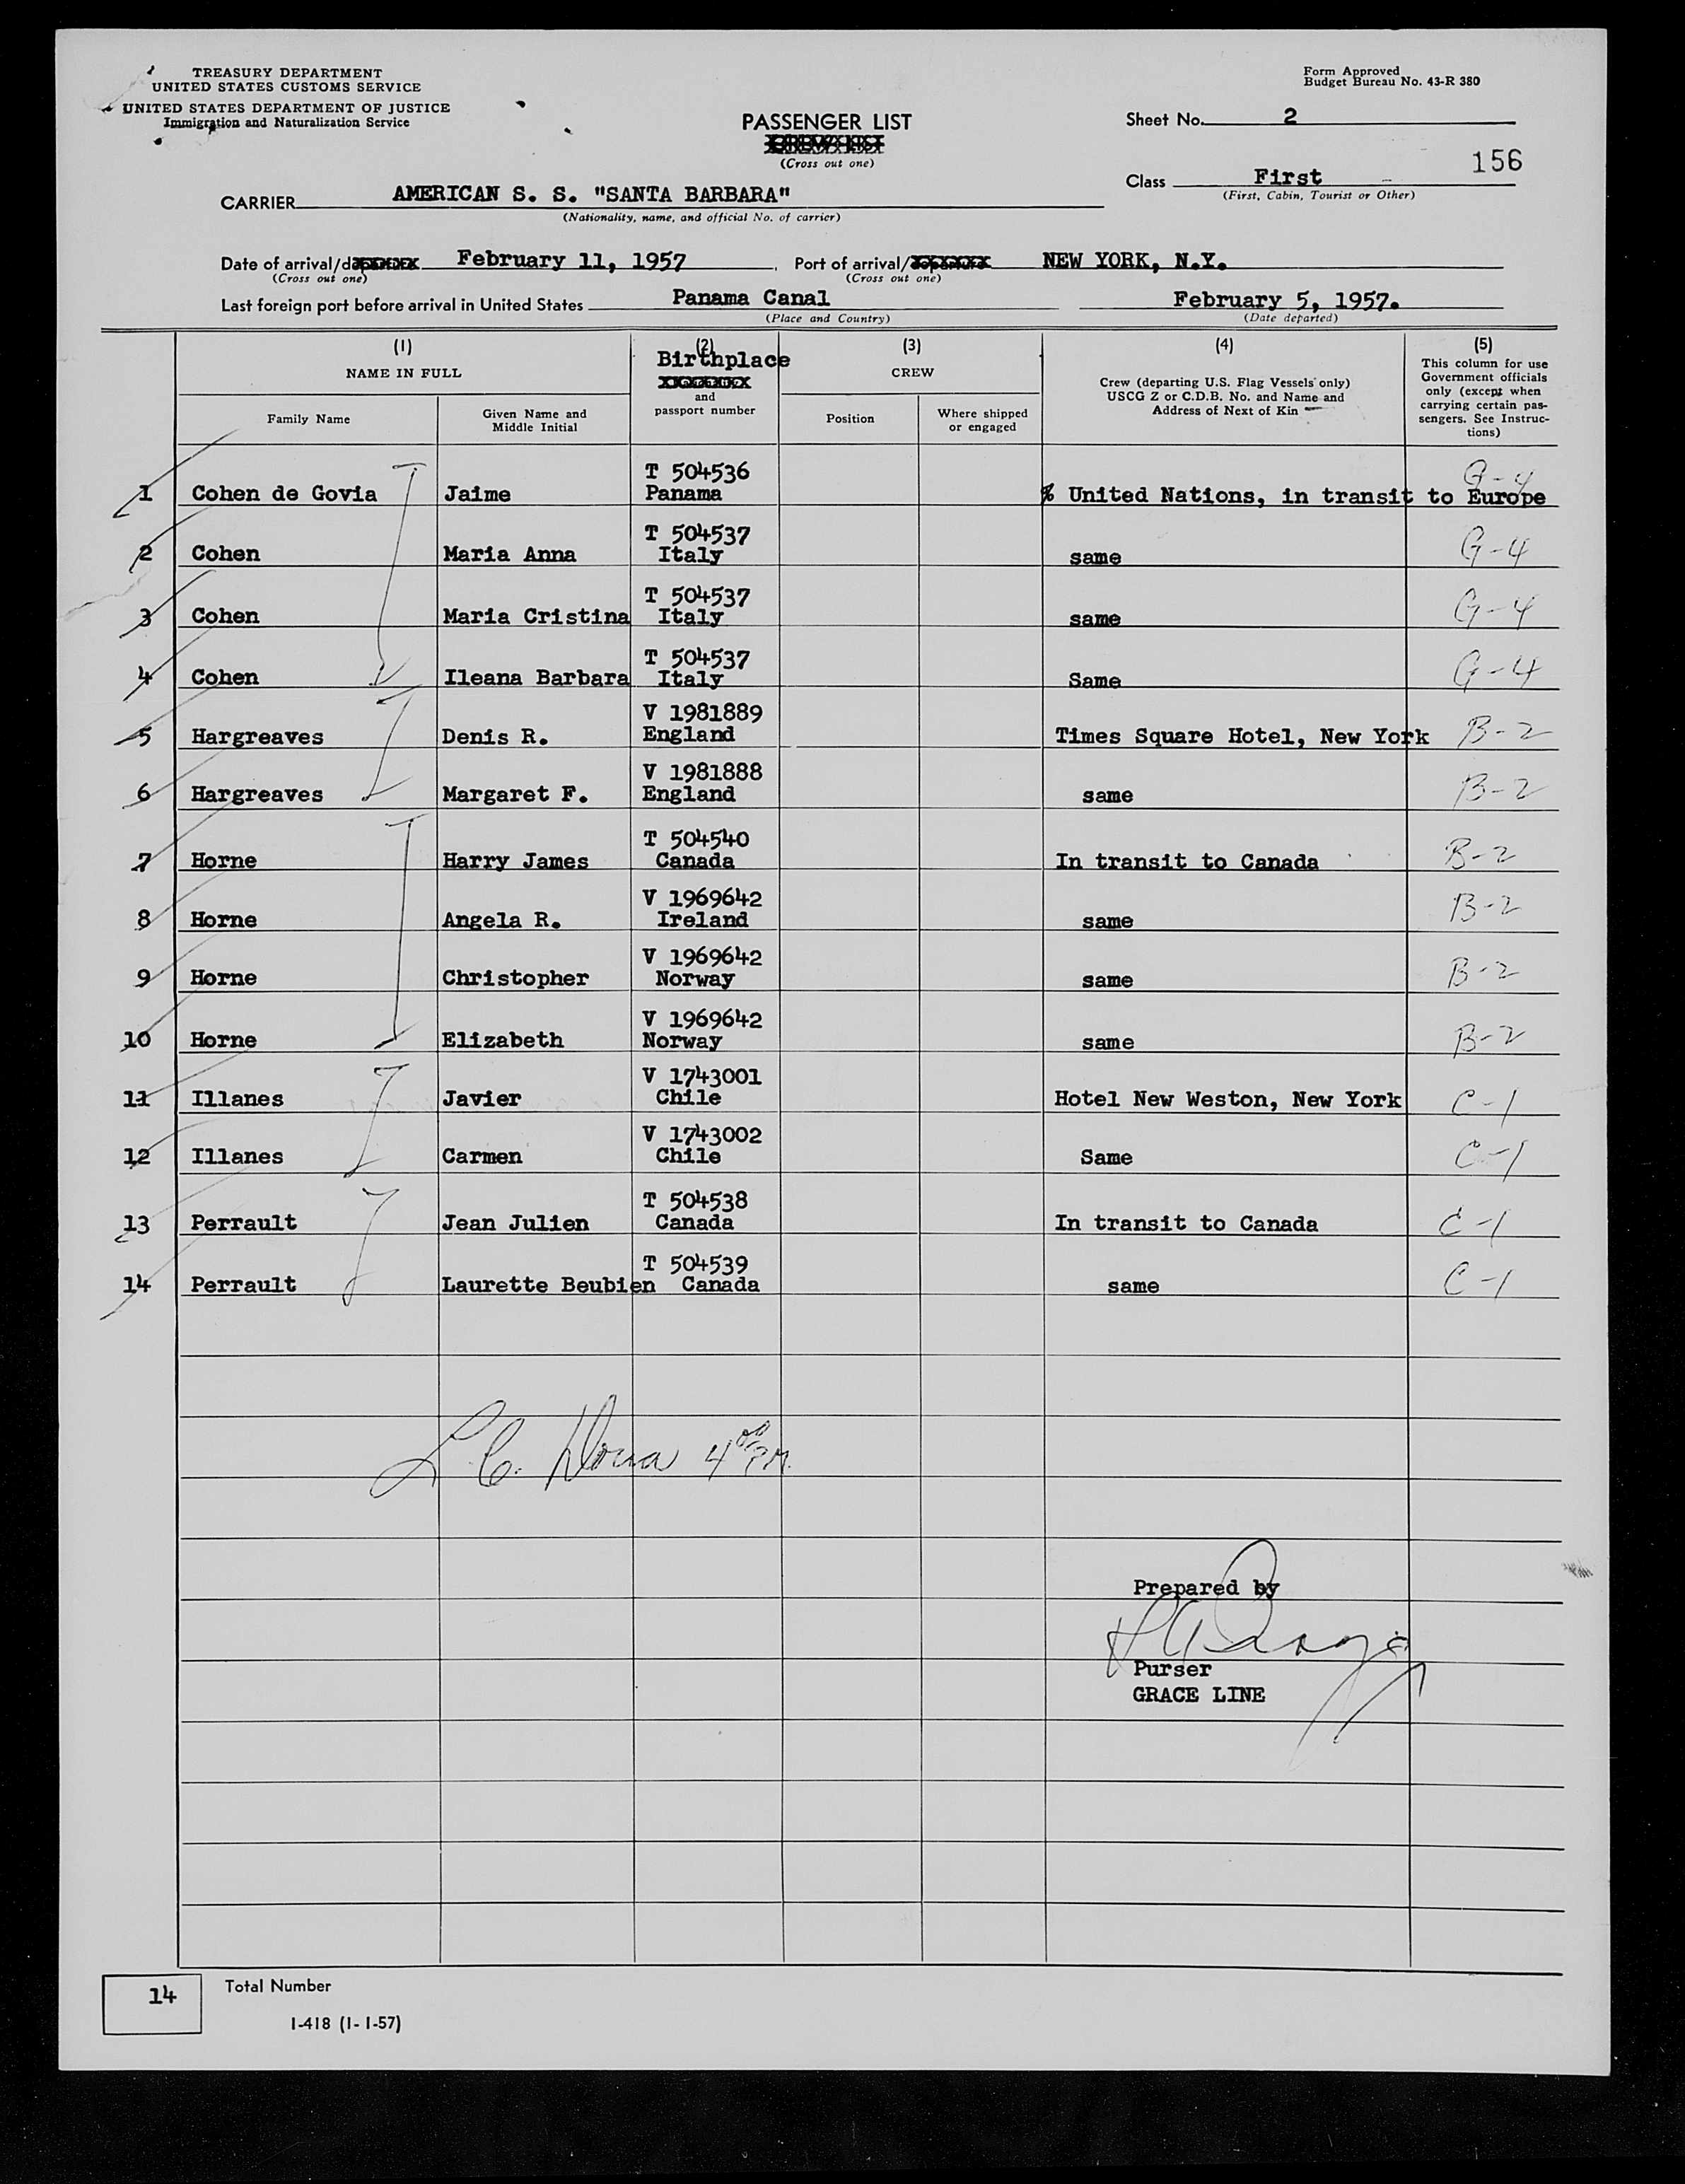 TREASURY DEPARTMENT
UNITED STATES CUSTOMS SERVICE
UNITED STATES DEPARTMENT OF JUSTICE
Immigration and Naturalization Service
Form Approved
Budget Bureau No. 43-R 380
PASSENGER LIST
CREW LIST
(Cross out one)
Sheet No. 2
156
Class First
(First, Cabin, Tourist or Other)
CARRIER AMERICAN S. S. "SANTA BARBARA"
(Nationality, name, and official No. of carrier)
Date of arrival/departure February 11, 1957, Port of arrival/departure NEW YORK, N.Y.
(Cross out one) (Cross out one)
Last foreign port before arrival in United States Panama Canal February 5, 1957.
(Place and Country) (Date departed)
(1) (2) (3) (4) (5)
NAME IN FULL
Birthplace
and
passport number
CREW
Crew (departing U.S. Flag Vessels only)
USCG Z or C.D.B. No. and Name and
Address of Next of Kin
This column for use
Government officials
only (except when
carrying certain pas-
sengers. See Instruc-
tions)
Family Name
Given Name and
Middle Initial
Position
Where shipped
or engaged
T 504536 G-4
1 Cohen de Govia Jaime Panama % United Nations, in transit to Europe
T 504537
2 Cohen Maria Anna Italy same G-4
T 504537
3 Cohen Maria Cristina Italy same G-4
T 504537
4 Cohen Ileana Barbara Italy Same G-4
V 1981889
5 Hargreaves Denis R. England Times Square Hotel, New York B-2
V 1981888
6 Hargreaves Margaret F. England same B-2
T 504540
7 Horne Harry James Canada In transit to Canada B-2
V 1969642
8 Horne Angela R. Ireland same B-2
V 1969642
9 Horne Christopher Norway same B-2
V 1969642
10 Horne Elizabeth Norway same B-2
V 1743001
11 Illanes Javier Chile Hotel New Weston, New York C-1
V 1743002
12 Illanes Carmen Chile Same C-1
T 504538
13 Perrault Jean Julien Canada In transit to Canada C-1
T 504539
14 Perrault Laurette Beubien Canada same C-1
4 00 PM.
Prepared by
Purser
GRACE LINE
14 Total Number
I-418 (1-1-57)